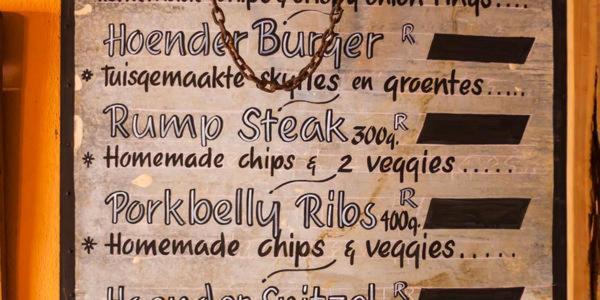 Homemade chips & crispy onion rings....
Hoender Burger R
* Tuisgemaakte skyfies en groentes.....
Rump Steak 300g. R
* Homemade chips & 2 veggies .....
Porkbelly Ribs 400g. R
* Homemade chips & veggies.....
Hoender Snitzel R